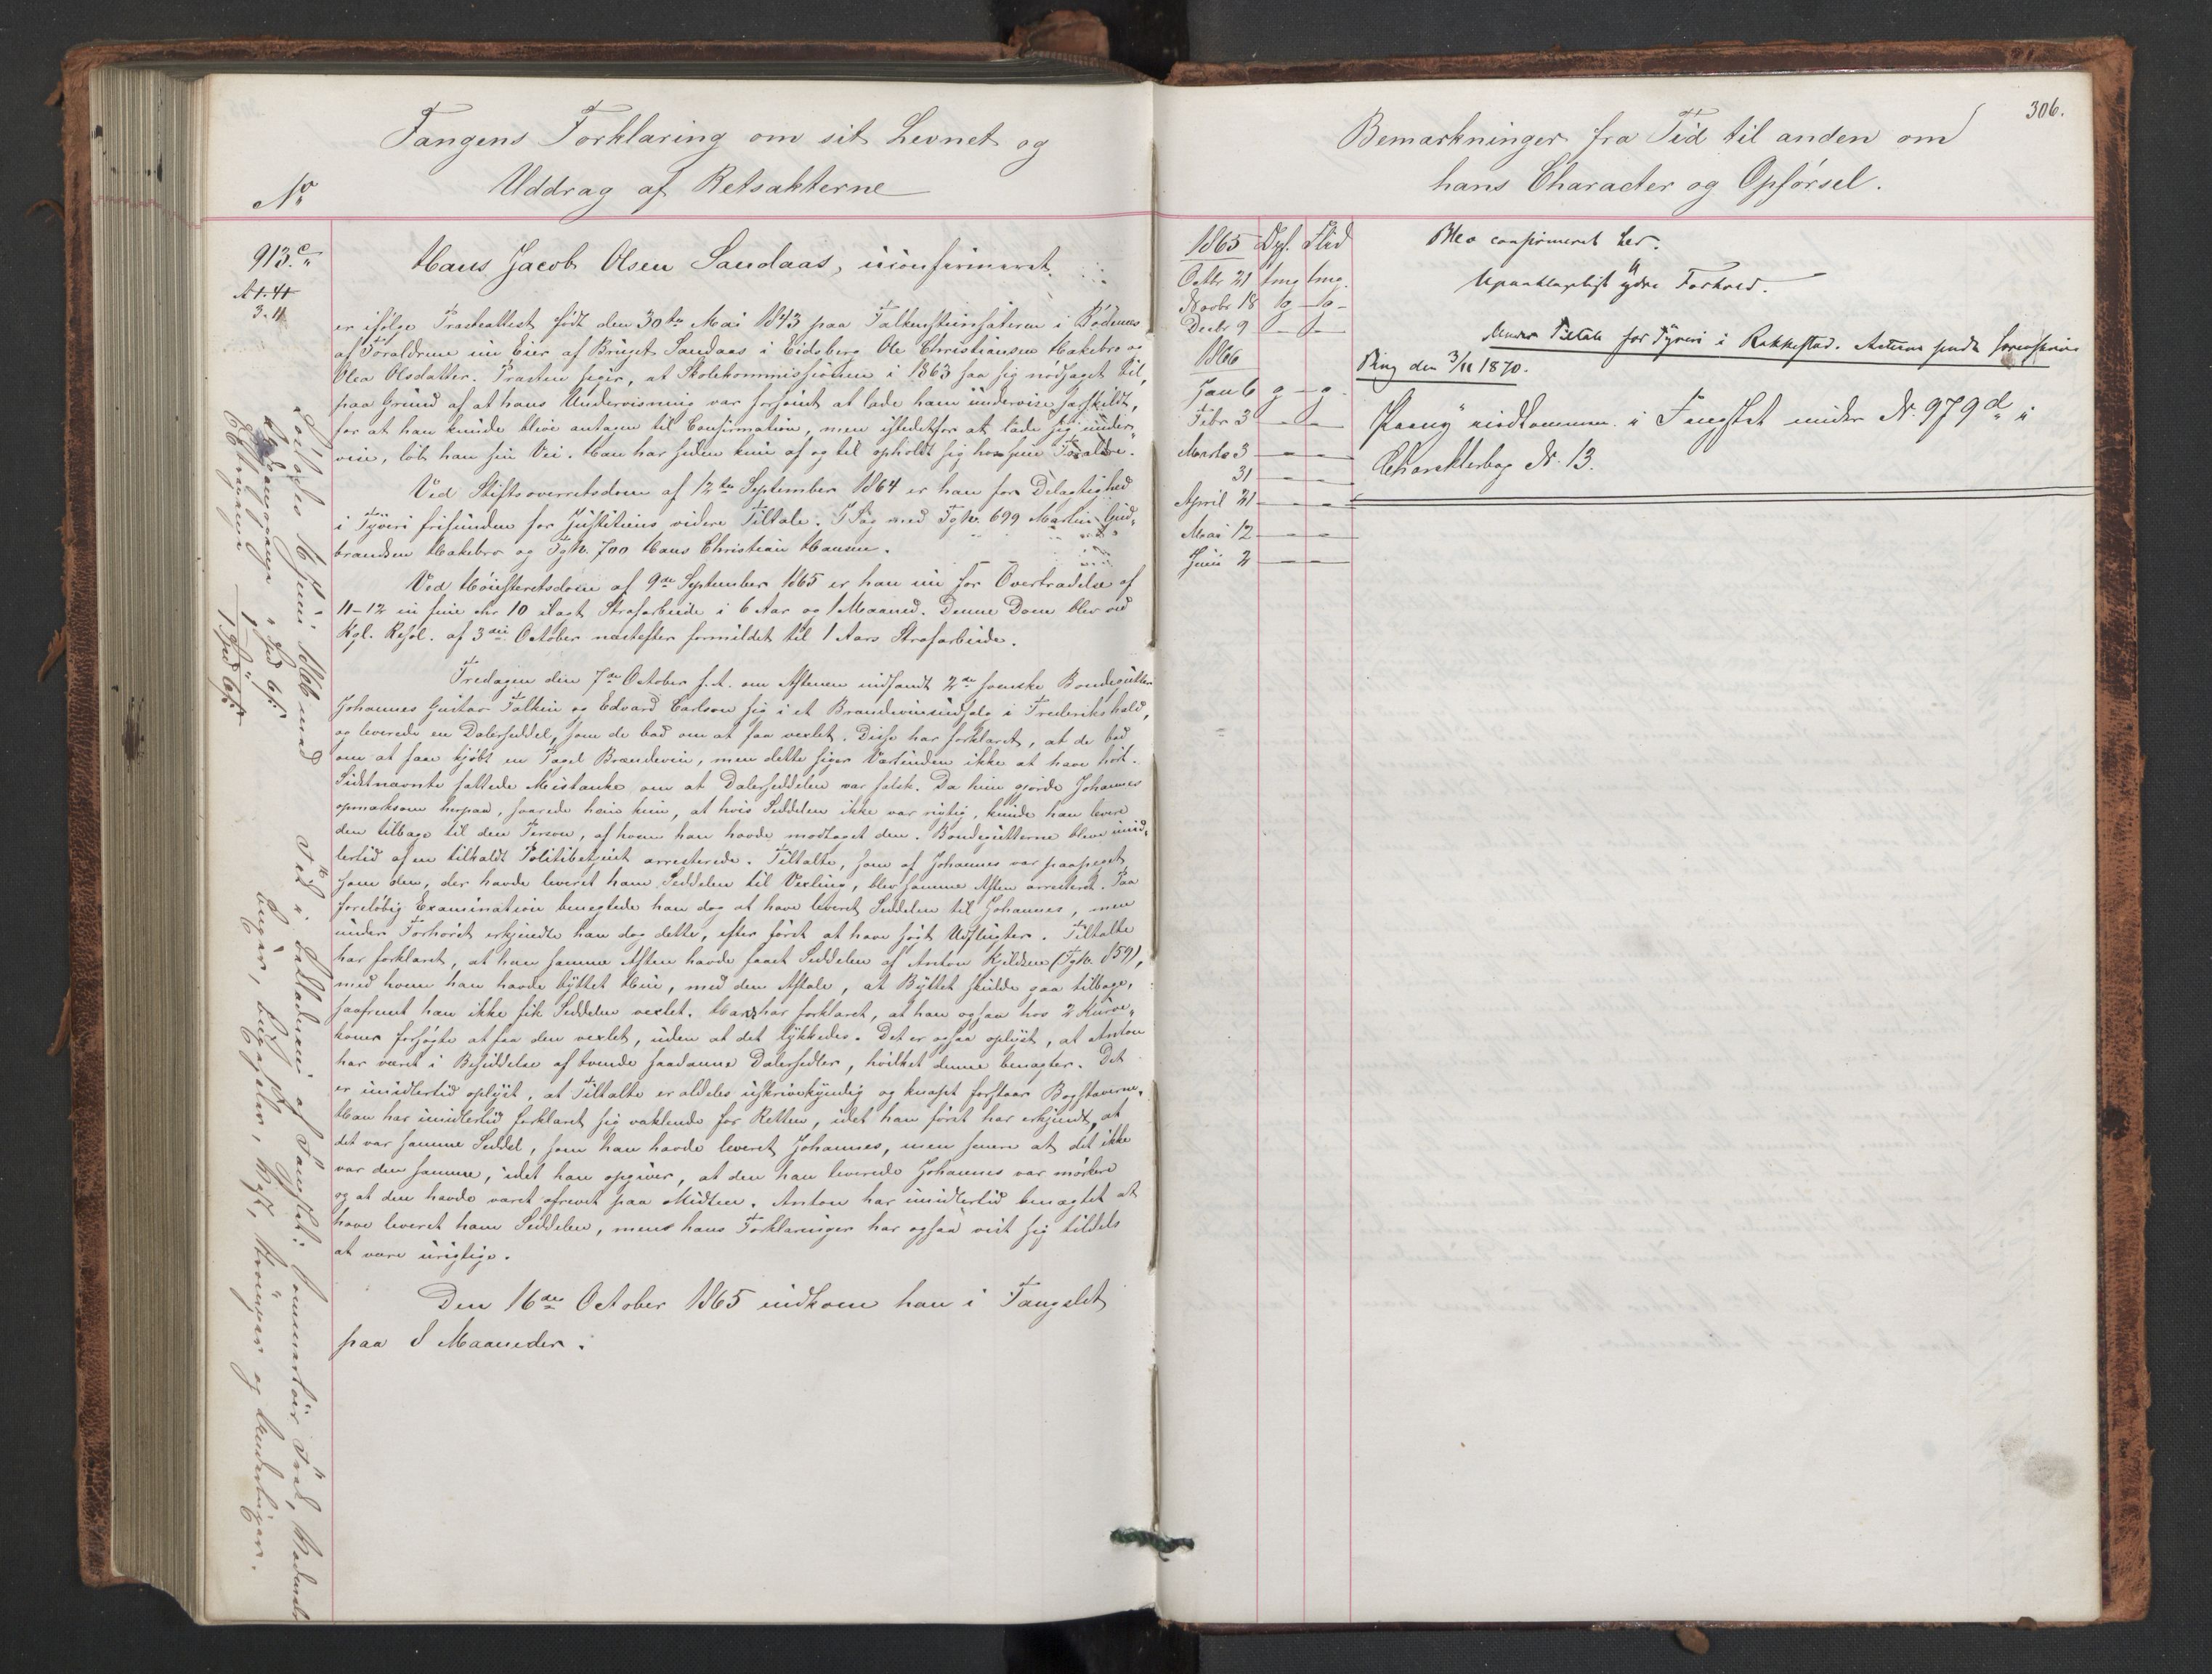 Fangens Forklaring om sit Levnet og
Uddrag af Retsakterne
No
913.c
A 1. 41
3. 11
Hans Jacob Olsen Sandaas, uconfirmeret,
er ifølge Præsteattest født den 30te Mai 1843 paa Falkensteinsæteren i Rødenæs
af Forældrene nu Eier af Bruget Sandaas i Eidsberg Ole Christiansen Hakebro og
Olea Olsdatter. Præsten siger, at Skolekommissionen i 1863 saa sig nødsaget til,
paa Grund af at hans Undervisning var forsømt at lade ham undervise særskildt,
for at han kunde blive antagen til Confirmation, men istedetfor at lade sig under-
vise, løb han sin Vei. Han har siden kun af og til opholdt sig hos sine Forældre.
Ved Stiftsoverretsdom af 12te September 1864 er han for Delagtighed
i Tyveri frifunden for Justitiens videre Tiltale. I Sag med Fg No. 699 Martin Gud-
brandsen Hakebro og Fg No. 700 Hans Christian Hansen.
Ved Høiesteretsdom af 9de September 1865 er han nu for Overtrædelse af
11-12 in fine cfr 10 ilagt Strafarbeide i 6 Aar og 1 Maaned. Denne Dom blev ved
Kgl. Resol. af 3die October næstefter formildet til 1 Aars Strafarbeide.
Fredagen den 7de October f. A. om Aftenen indfandt 2de svenske Bondegutter
Johannes Gustav Falkin og Edvard Carlson sig i et Brændevinsudsalg i Frederikshald,
og leverede en Dalerseddel, som de bad om at faa vexlet. Disse har forklaret, at de bad
om at faae kjøbt en Pægel Brændevin, men dette siger Værtinden ikke at have hørt.
Sidstnævnte fattede Mistanke om at Dalerseddelen var falsk. Da hun gjorde Johannes
opmærksom herpaa, svarede han kun, at hvis Seddelen ikke var rigtig, kunde han levere
den tilbage til den Person, af hvem han havde modtaget den. Bondegutterne bleve imid-
lertid af en tilkaldt Politibetjent arresterede. Tiltalte, som af Johannes var paapeget
som den, der havde leveret ham Seddelen til Vexling, blev samme Aften arresteret. Paa
foreløbig Examination benegtede han dog at have leveret Seddelen til Johannes, men
under Forhøret erkjendte han dog dette, efter først at have søgt Udflugter. Tiltalte
har forklaret, at han samme Aften havde faaet Seddelen af Anton Kjeldsen (Fg No. 859),
med hvem han havde byttet Huer, med den Aftale, at Byttet skulde gaa tilbage,
saafremt han ikke fik Seddelen vexlet. Hans har forklaret, at han ogsaa hos 2 Kurve-
koner forsøgte at faa den vexlet, uden at det lykkedes. Det er ogsaa oplyst, at Anton
har været i Besiddelse af tvende saadanne Dalersedler, hvilket denne benægter. Det
er imidlertid oplyst, at Tiltalte er aldeles uskrivekyndig og knapt forstaar Bogstaverne.
Han har imidlertid forklaret sig vaklende for Retten, idet han først har erkjendt, at
det var samme Seddel, som han havde leveret Johannes, men senere at det ikke
var den samme, idet han opgiver, at den han leverede Johannes var mørkere
og at den havde været afrevet paa Midten. Anton har imidlertid benægtet at
have leveret ham Seddelen, mens hans Forklaringer har ogsaa vist sig tildels
at være urigtige.
Den 16de October 1865 indkom han i Fangslet
paa 8 Maaneder.
Løslades 16 Juni 1866 med
306.
Bemærkninger fra Tid til anden om
hans Character og Opførsel.
1865 Opf. Flid
Octbr 21 tmg tmg.
Novbr 18 g g
Decbr 9 - -
1866
Jan 6 g g
Febr 3 - -
Marts 3 - -
31 - -
April 21 - -
Mai 12 - -
Juni 2 - -
Blev confirmeret her.
Upaaklageligt ydre Forhold.
Under Tiltale for Tyveri i Rakkestad. Acterne sendt Sorenskriver
Bing den 3/11 1870.
Paany indkommen i Fangslet under No. 979 d i
Charakterbog No. 13.